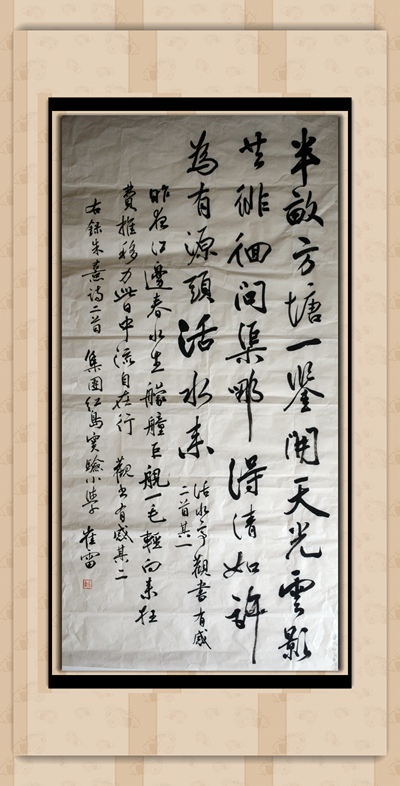 半畝方塘一鑒開天光雲影
共徘徊問渠哪得清如許
為有源頭活水来
活水亭觀書有感
二首其一
昨夜江邊春水生艨艟巨舰一毛輕向来枉
費推移力此日中流自在行 觀书有感其二
右録朱熹诗二首 集團红島實驗小學 崔雷